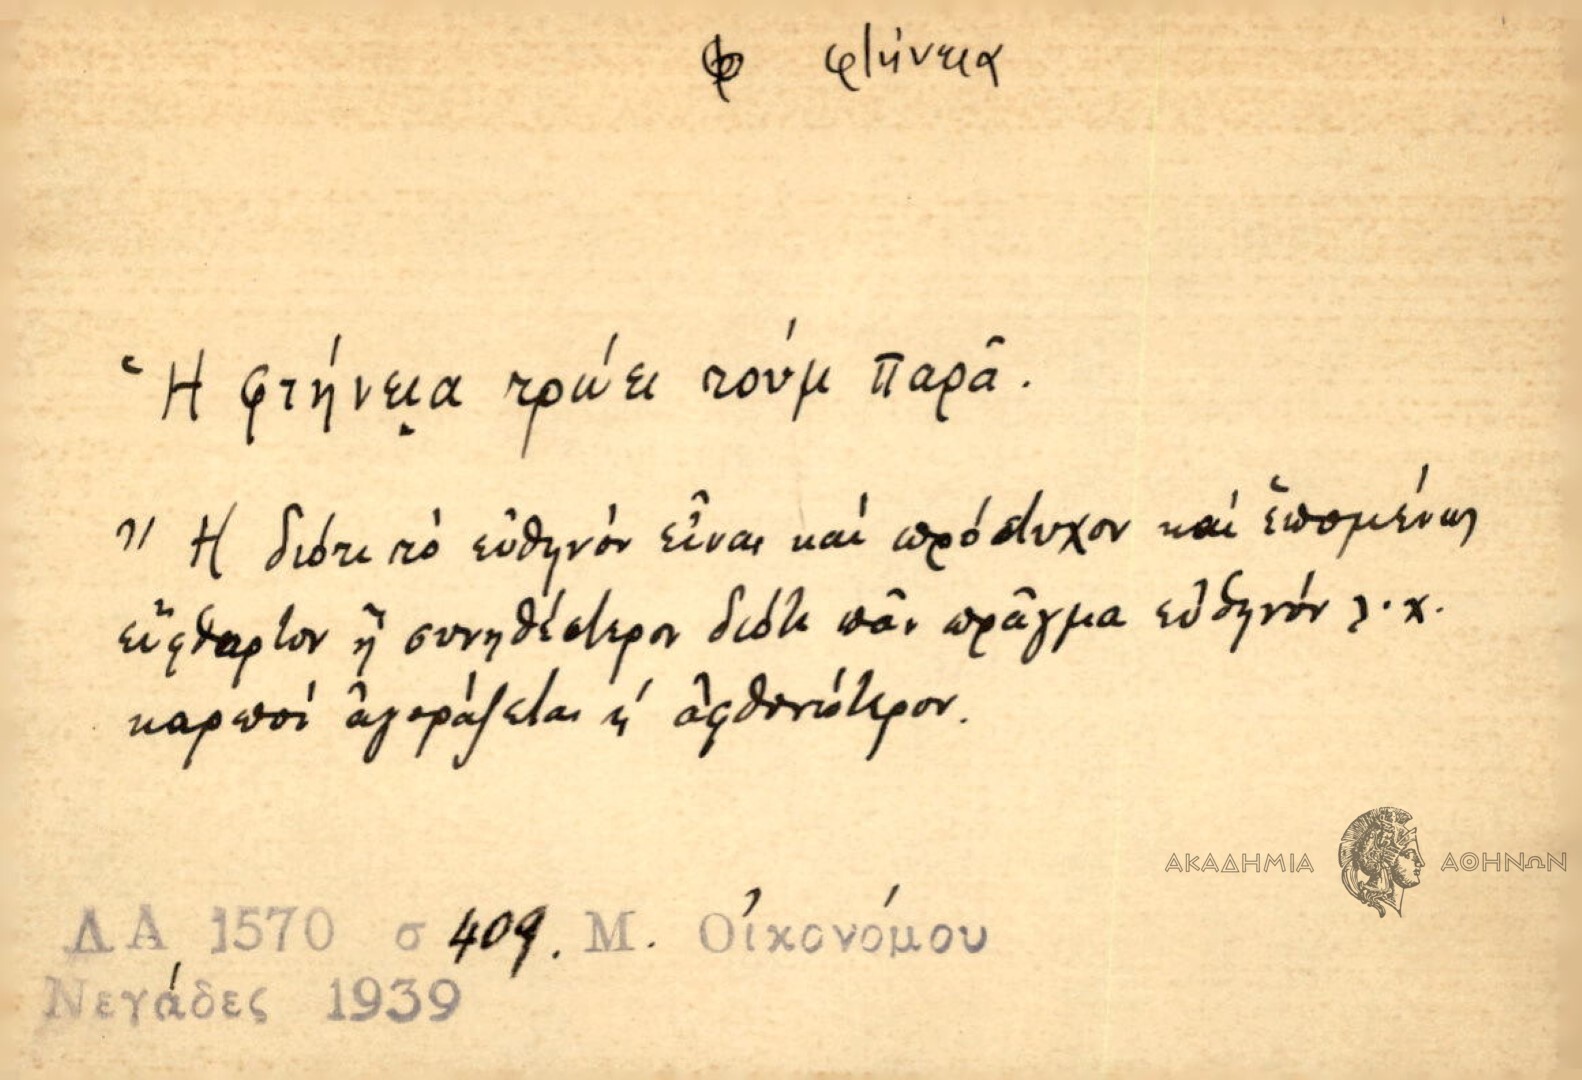 φ φτήνεια
Ἡ φτήνει̯α τρώει τούμ παρᾶ.
Ἤ διότι τό εὐθηνόν εἶναι καί πρόστυχον καί ἑπομένως
εὔφθαρτον ἤ συνηθέστερον διότι πᾶν πρᾶγμα εὐθηνόν λ.χ.
καρποί ἀγοράζεται ἀφθονώτερον.
ΑΚΑΔΗΜΙΑ ΑΘΗΝΩΝ
ΔΑ 1570 σ 409. Μ. Οἰκονόμου
Νεγάδες 1939